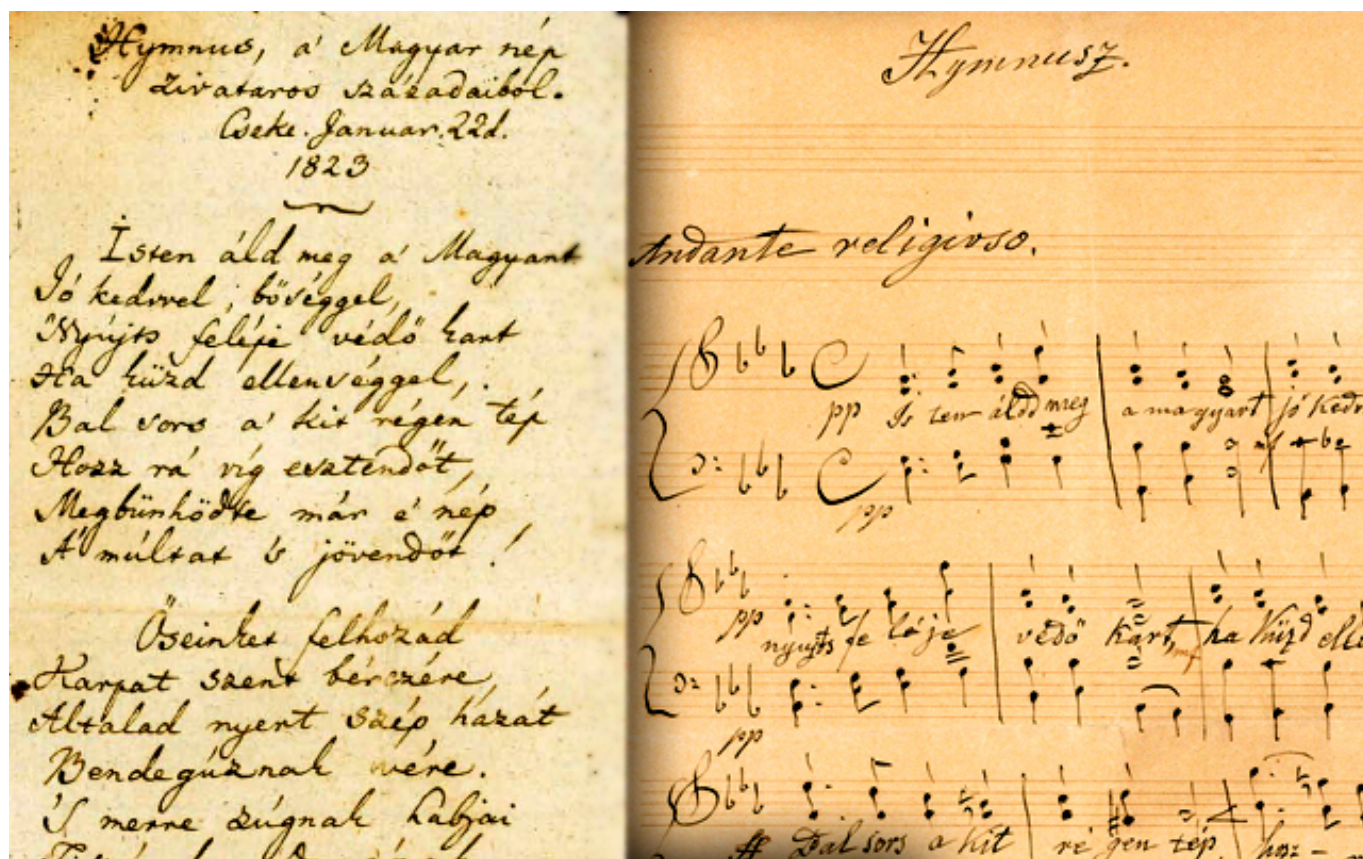 Hymnus, a' Magyar nép
zivataros századaiból.
Cseke. Januar. 22d.
1823
Isten áld meg a' Magyart
Jó kedvvel, bőséggel,
Nyújts feléje védő kart
Ha küzd ellenséggel,
Bal sors a' kit régen tép
Hozz rá víg esztendőt,
Megbünhödte már e' nép
A' múltat 's jövendőt!
Őseinket felhozád
Karpat szent bérczére
Általad nyert szép hazát
Bendegúznak vére.
'S merre zúgnak habjai
Hymnusz.
Andante religioso.
pp Is ten áldd meg a magyart jó kedv
mf
pp
pp nyujts fe léje védő kart, mf ha küzd elle
pp
ff Balsors a kit ré gen tép, hoz-